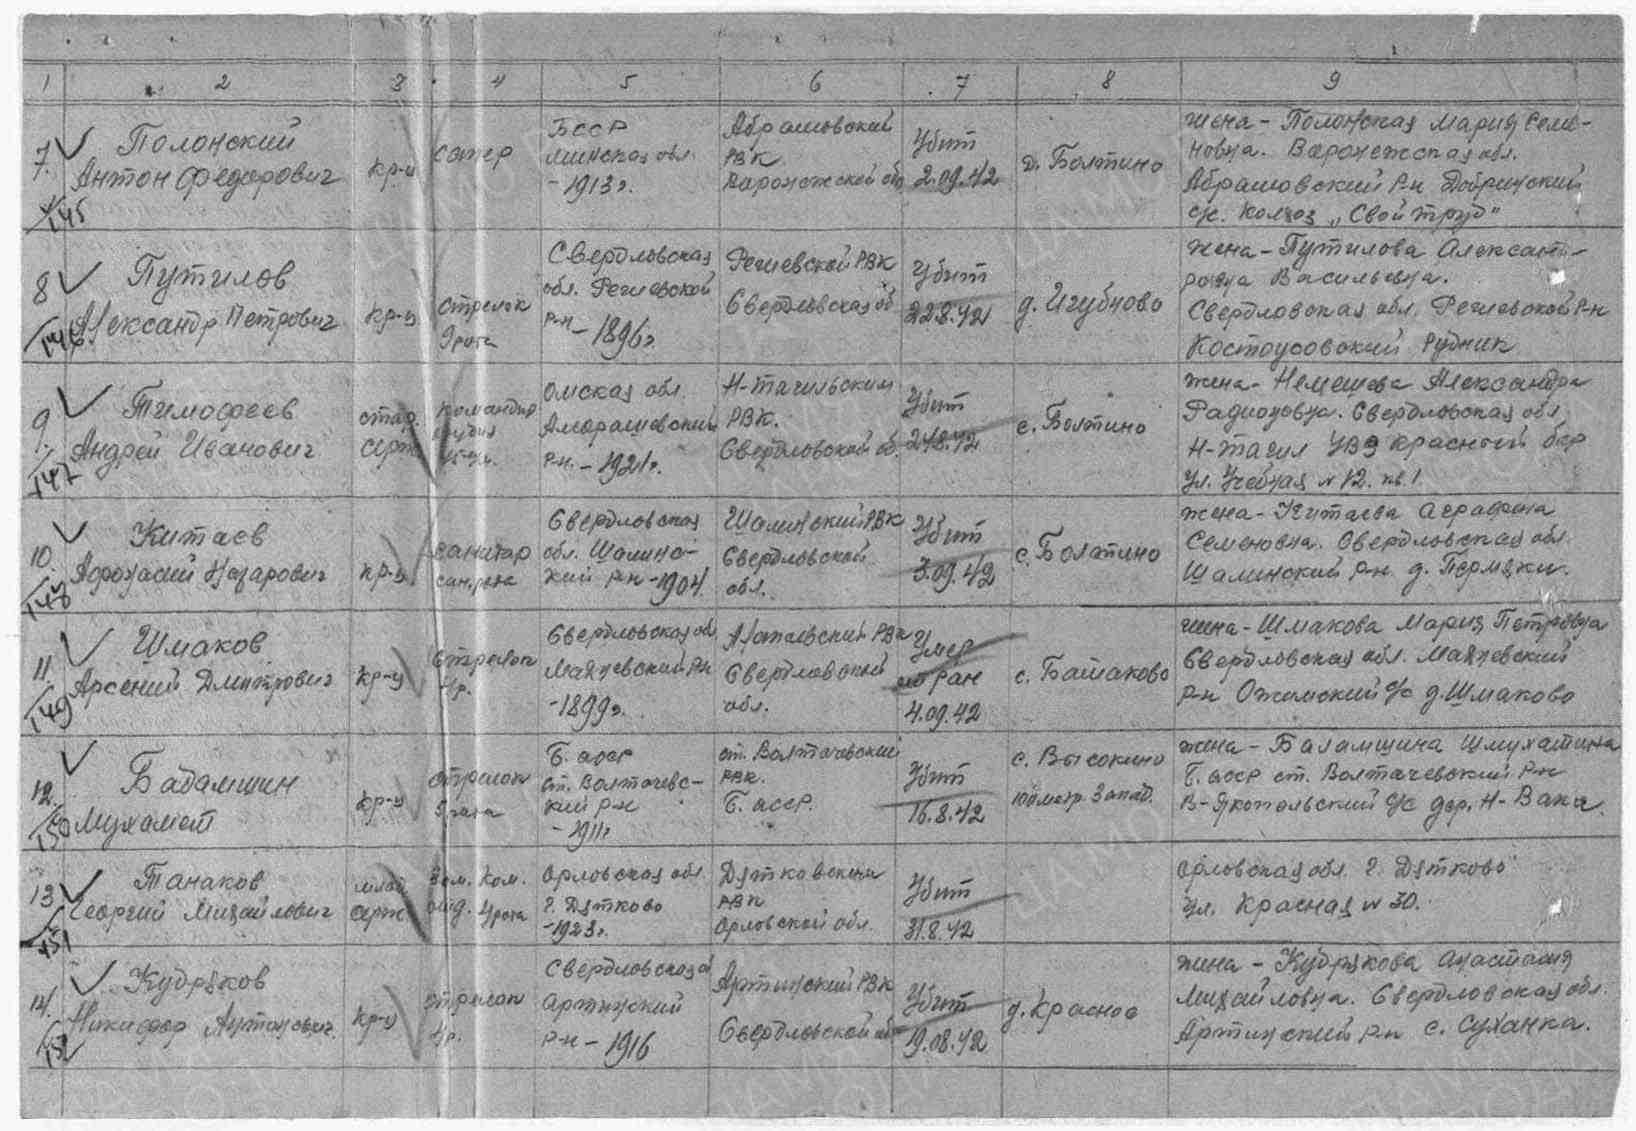 1 2 3 4 5 6 7 8 9
7.
145
Полонский
Антон Федорович
кр-ц
сапер
БССР
Минская обл.
-1913г.
Абрашовский
РВК
Варонежской об
Убит
2.09.42
д. Болтино
жена - Полонская Мария Семе-
новна. Варонежская обл.
Абрашовский р-н Добринский
с/с. Колхоз „Свой труд"
8
146
Путилов
Александр Петрович
кр-ц
стрелок
9 рота
Свердловская
обл. Режевской
р-н - 1896г.
Режевской РВК
Свердловская об
Убит
22.8.42
д. Игубново
жена - Путилова Александ-
ровна Васильевна.
Свердловская обл. Режевской р-н
Костоусовский Рудник
9.
147
Тимофеев
Андрей Иванович
стар.
серж.
командир
орудия
Омская обл.
Аморашевский
р-н. - 1921г.
Н-Тагильским
РВК.
Свердловской об.
Убит
24.8.42
с. Болтино
жена - Немешева Александра
Радионовна. Свердловская обл
Н-Тагил УВЗ Красный бор
Ул. Учебная № 12. кв. 1
10.
148
Китаев
Афонасий Назарович
кр-ц.
санитар
сан.рота
Свердловская
обл. Шалинс-
кий р-н - 1904.
Шалинский РВК
Свердловской
обл.
Убит
3.09.42
с. Болтино
жена - Китаева Аграфена
Семеновна. Свердловская обл.
Шалинский р-н д. Пермяки.
11.
149
Шмаков
Арсений Дмитрович
кр-ц
стрелок
4р.
Свердловская об
Махневский р-н
-1899г.
Алапаевский РВК
Свердловский
обл.
Умер
от ран
4.09.42
с. Башаково
жена - Шмакова Мария Петровна
Свердловская обл. Махневский
р-н Ожгинский с/с д. Шмаково
12.
150
Бадамшин
Мухамет
кр-ц
стрелок
9 рота
Б. асср
ст. Балтачевс-
кий р-н
- 1911г
ст. Балтачевский
РВК.
Б. асср.
Убит
16.8.42
с. Высокино
100 метр. Запад.
жена - Баламшина Шмухатина
Б. асср ст. Балтачевский р-н
В-Якопольский с/с дер. Н-Вака.
13
151
Танаков
Георгий Михайлович
млад
серж.
Зам. Ком.
отд. 4 рота
Орловская обл.
г. Дятково
-1923г.
Дятковским
РВК
Орловской обл.
Убит
31.8.42
Орловская обл. г. Дятково
ул. Красная № 30.
14.
152
Кудряков
Никифор Антонович
кр-ц
стрелок
4р.
Свердловская о
Артинский
р-н - 1916
Артинский РВК
Свердловской об
Убит
19.08.42
д. Красное
жена - Кудрякова Анастасия
Михайловна. Свердловская обл.
Артинский р-н с. Суханка.